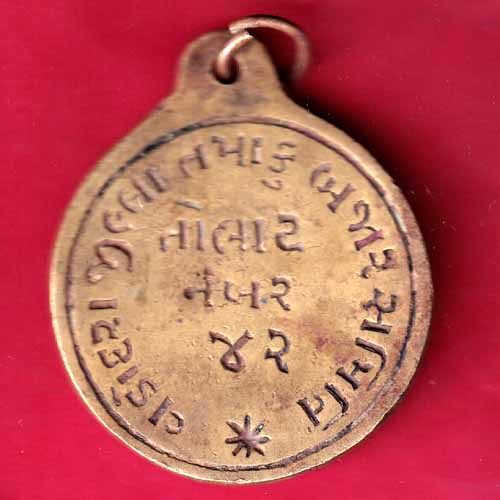 વડોદરા જીલ્લા તમાકુ બજાર સમિતિ
તોલાટ
નંબર
૪૨